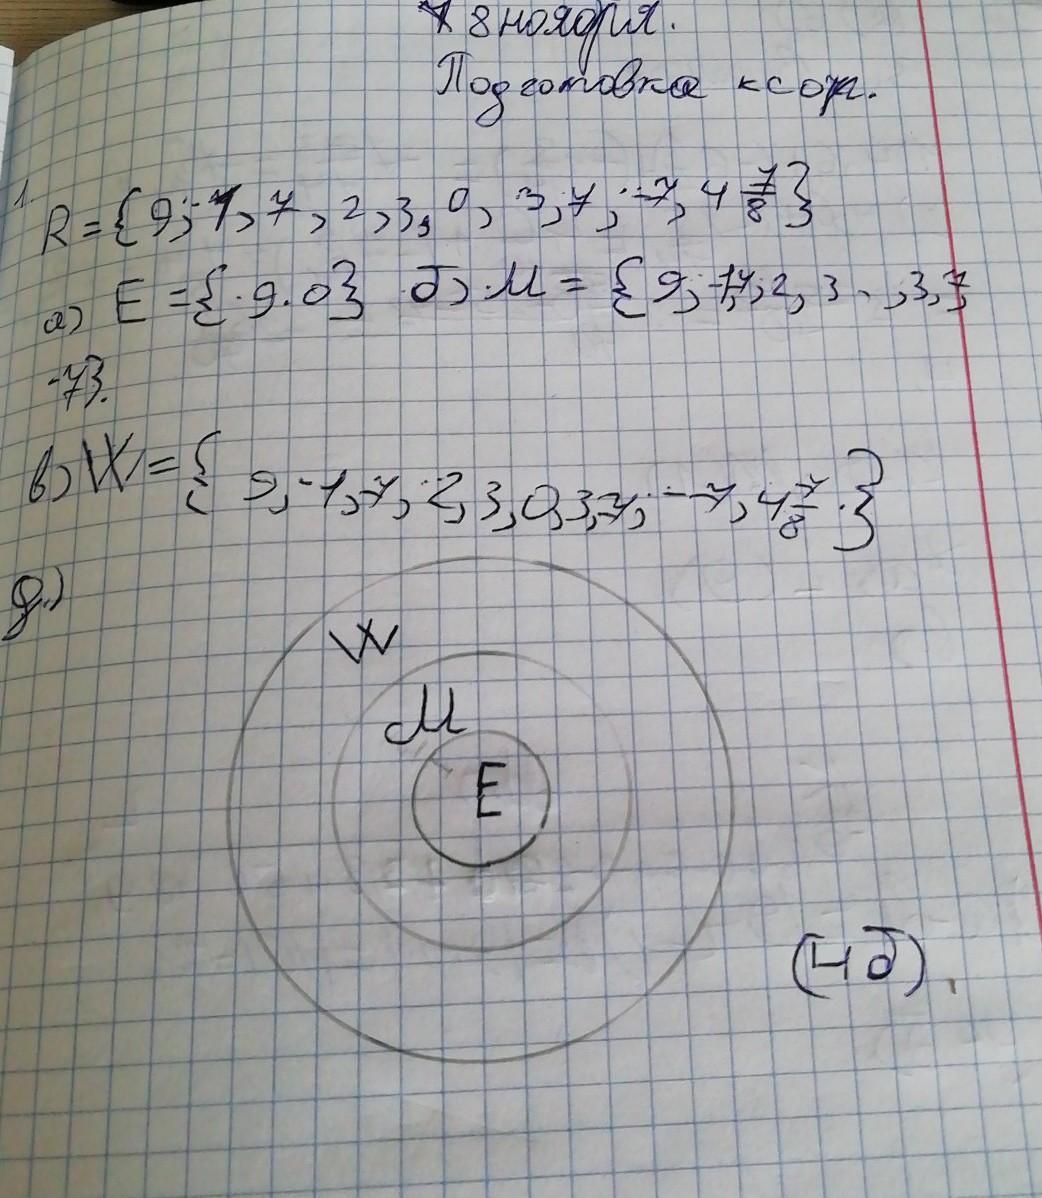 8 ноября.
Подготовка к сор.
1.
R = {9; -1, 7, 2, 3, 0, 3, 7, -7, 4 7/8}
а) E = {9.0} б) M = {9, -1, 7, 2, 3 , 3, 7,
-7}.
в) W = { 9, -1, 7, 2, 3, 0, 3, 7, -7, 4 7/8 }
д)
W
M
E
(4б).